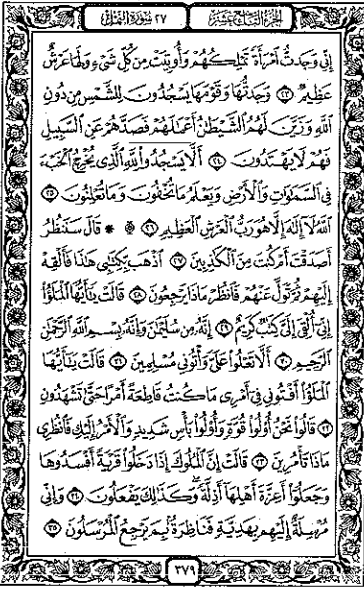 الجزء التاسع عشر ٢٧ سورة النمل
إِنِّي وَجَدتُّ ٱمْرَأَةً تَمْلِكُهُمْ وَأُوتِيَتْ مِن كُلِّ شَىْءٍ وَلَهَا عَرْشٌ
عَظِيمٌ ٢٣ وَجَدتُّهَا وَقَوْمَهَا يَسْجُدُونَ لِلشَّمْسِ مِن دُونِ
ٱللَّهِ وَزَيَّنَ لَهُمُ ٱلشَّيْطَٰنُ أَعْمَٰلَهُمْ فَصَدَّهُمْ عَنِ ٱلسَّبِيلِ
فَهُمْ لَا يَهْتَدُونَ ٢٤ أَلَّا يَسْجُدُوا۟ لِلَّهِ ٱلَّذِى يُخْرِجُ ٱلْخَبْءَ
فِى ٱلسَّمَٰوَٰتِ وَٱلْأَرْضِ وَيَعْلَمُ مَا تُخْفُونَ وَمَا تُعْلِنُونَ ٢٥
ٱللَّهُ لَآ إِلَٰهَ إِلَّا هُوَ رَبُّ ٱلْعَرْشِ ٱلْعَظِيمِ ۩ ٢٦ ۞ قَالَ سَنَنظُرُ
أَصَدَقْتَ أَمْ كُنتَ مِنَ ٱلْكَٰذِبِينَ ٢٧ ٱذْهَب بِّكِتَٰبِى هَٰذَا فَأَلْقِهْ
إِلَيْهِمْ ثُمَّ تَوَلَّ عَنْهُمْ فَٱنظُرْ مَاذَا يَرْجِعُونَ ٢٨ قَالَتْ يَٰٓأَيُّهَا ٱلْمَلَؤُا۟
إِنِّىٓ أُلْقِىَ إِلَىَّ كِتَٰبٌ كَرِيمٌ ٢٩ إِنَّهُۥ مِن سُلَيْمَٰنَ وَإِنَّهُۥ بِسْمِ ٱللَّهِ ٱلرَّحْمَٰنِ
ٱلرَّحِيمِ ٣٠ أَلَّا تَعْلُوا۟ عَلَىَّ وَأْتُونِى مُسْلِمِينَ ٣١ قَالَتْ يَٰٓأَيُّهَا
ٱلْمَلَؤُا۟ أَفْتُونِى فِىٓ أَمْرِى مَا كُنتُ قَاطِعَةً أَمْرًا حَتَّىٰ تَشْهَدُونِ
٣٢ قَالُوا۟ نَحْنُ أُو۟لُوا۟ قُوَّةٍ وَأُو۟لُوا۟ بَأْسٍ شَدِيدٍ وَٱلْأَمْرُ إِلَيْكِ فَٱنظُرِى
مَاذَا تَأْمُرِينَ ٣٣ قَالَتْ إِنَّ ٱلْمُلُوكَ إِذَا دَخَلُوا۟ قَرْيَةً أَفْسَدُوهَا
وَجَعَلُوٓا۟ أَعِزَّةَ أَهْلِهَآ أَذِلَّةً وَكَذَٰلِكَ يَفْعَلُونَ ٣٤ وَإِنِّى
مُرْسِلَةٌ إِلَيْهِم بِهَدِيَّةٍ فَنَاظِرَةٌۢ بِمَ يَرْجِعُ ٱلْمُرْسَلُونَ ٣٥
٣٧٩